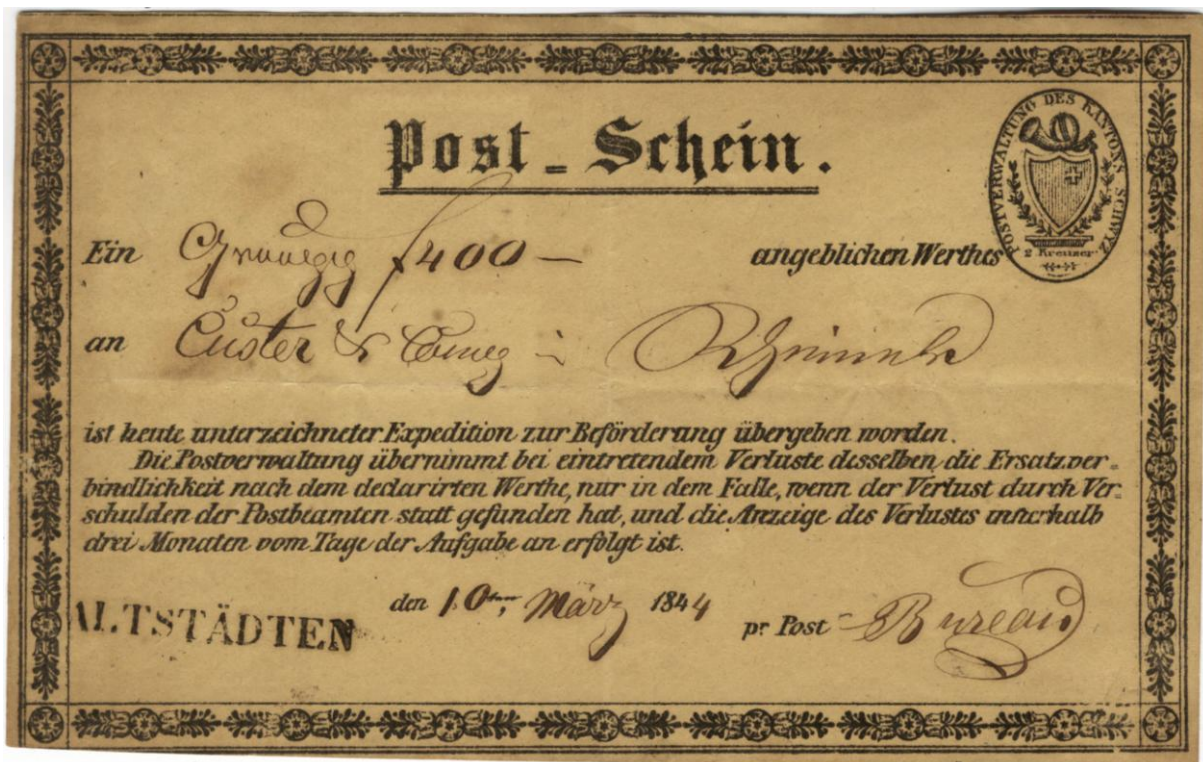 Post - Schein.
POSTVERWALTUNG DES KANTONS SCHWYZ
2 Kreuzer.
Ein f 400 — angeblichen Werthes
an Custer & Comp i Rheineck
ist heute unterzeichneter Expedition zur Beförderung übergeben worden.
Die Postverwaltung übernimmt bei eintretendem Verluste desselben, die Ersatzver-
bindlichkeit nach dem declarirten Werthe, nur in dem Falle, wenn der Verlust durch Ver-
schulden der Postbeamten statt gefunden hat, und die Anzeige des Verlustes innerhalb
drei Monaten vom Tage der Aufgabe an erfolgt ist.
ALTSTÄDTEN den 10ten März 1844 pr Post - Bureau